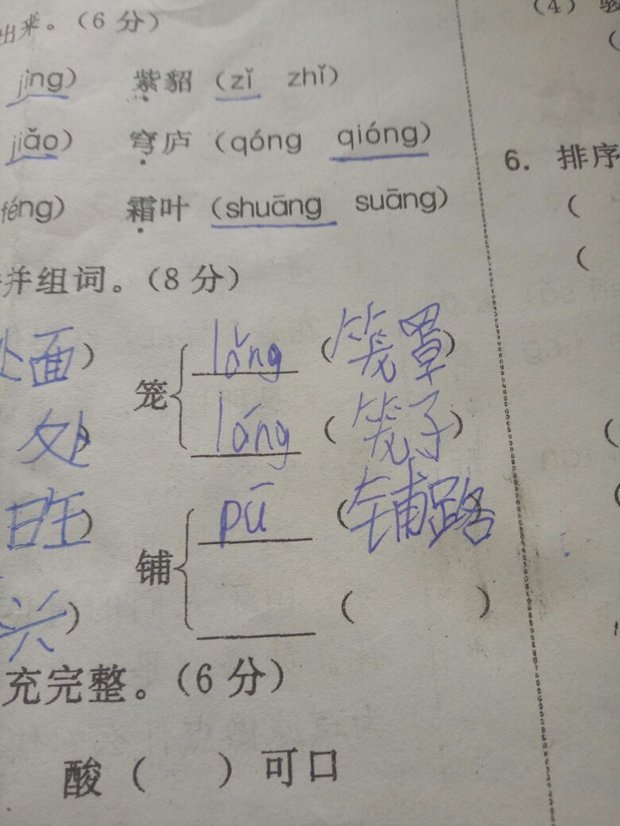 出来。（6分）
jīng） 紫貂（zǐ zhǐ）
jiǎo） 穹庐（qóng qióng）
féng） 霜叶（shuāng suāng）
并组词。（8分）
面） 笼 lǒng （笼罩）
处） lóng （笼子）
旺） 铺 pū （铺路）
兴） （ ）
充完整。（6分）
酸（ ）可口
（4）
（
6. 排序
（
（
（
（